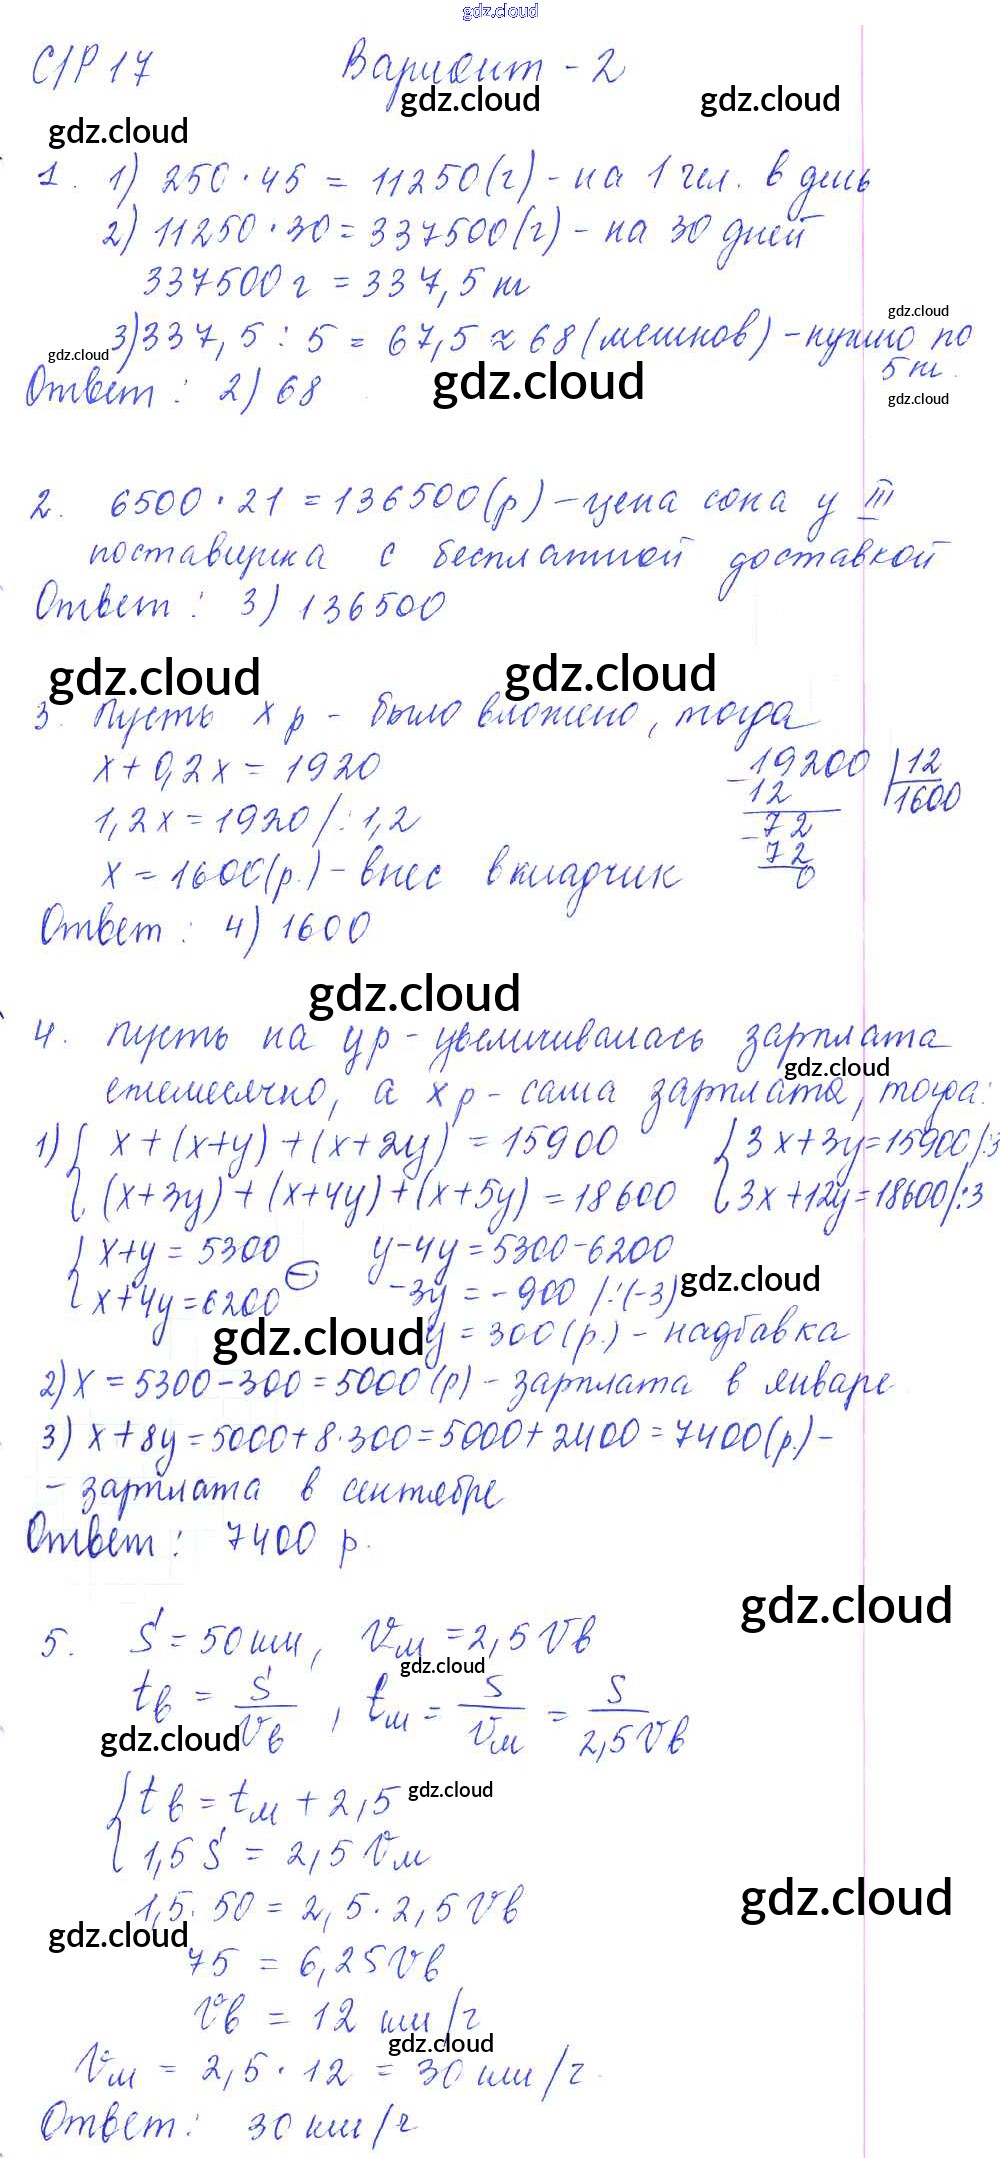 gdz.cloud
С/Р 17 Вариант - 2
gdz.cloud gdz.cloud
gdz.cloud
1. 1) 250 · 45 = 11250 (г) - на 1 чел. в день
2) 11250 · 30 = 337500 (г) - на 30 дней
337500 г = 337,5 т
gdz.cloud
3) 337,5 : 5 = 67,5 ≈ 68 (мешков) - нужно по
gdz.cloud
5 т.
gdz.cloud
Ответ: 2) 68
gdz.cloud
2. 6500 · 21 = 136500 (р) - цена сока у III
поставщика с бесплатной доставкой
Ответ: 3) 136500
gdz.cloud gdz.cloud
3. Пусть x р - было вложено, тогда
x + 0,2x = 1920
1,2x = 1920 /: 1,2
x = 1600 (р.) - внес вкладчик
19200 | 12
12 1600
- 72
72
0
Ответ: 4) 1600
gdz.cloud
4. Пусть на y р - увеличивалась зарплата
gdz.cloud
ежемесячно, а x р - сама зарплата, тогда:
1) { x + (x+y) + (x+2y) = 15900 { 3x + 3y = 15900 /:3
(x+3y) + (x+4y) + (x+5y) = 18600 3x + 12y = 18600 /:3
{ x+y = 5300 y - 4y = 5300 - 6200
x + 4y = 6200 - -3y = -900 /: (-3)
gdz.cloud
y = 300 (р.) - надбавка
gdz.cloud
2) x = 5300 - 300 = 5000 (р) - зарплата в январе
3) x + 8y = 5000 + 8 · 300 = 5000 + 2400 = 7400 (р.) -
- зарплата в сентябре
Ответ: 7400 р.
gdz.cloud
5. S = 50 км, Vм = 2,5 Vв
gdz.cloud
tв = S/Vв, tм = S/Vм = S/2,5Vв
gdz.cloud
{ tв = tм + 2,5
gdz.cloud
1,5 S = 2,5 Vм
gdz.cloud
1,5 · 50 = 2,5 · 2,5 Vв
gdz.cloud
75 = 6,25 Vв
Vв = 12 км/ч
gdz.cloud
Vм = 2,5 · 12 = 30 км/ч.
Ответ: 30 км/ч